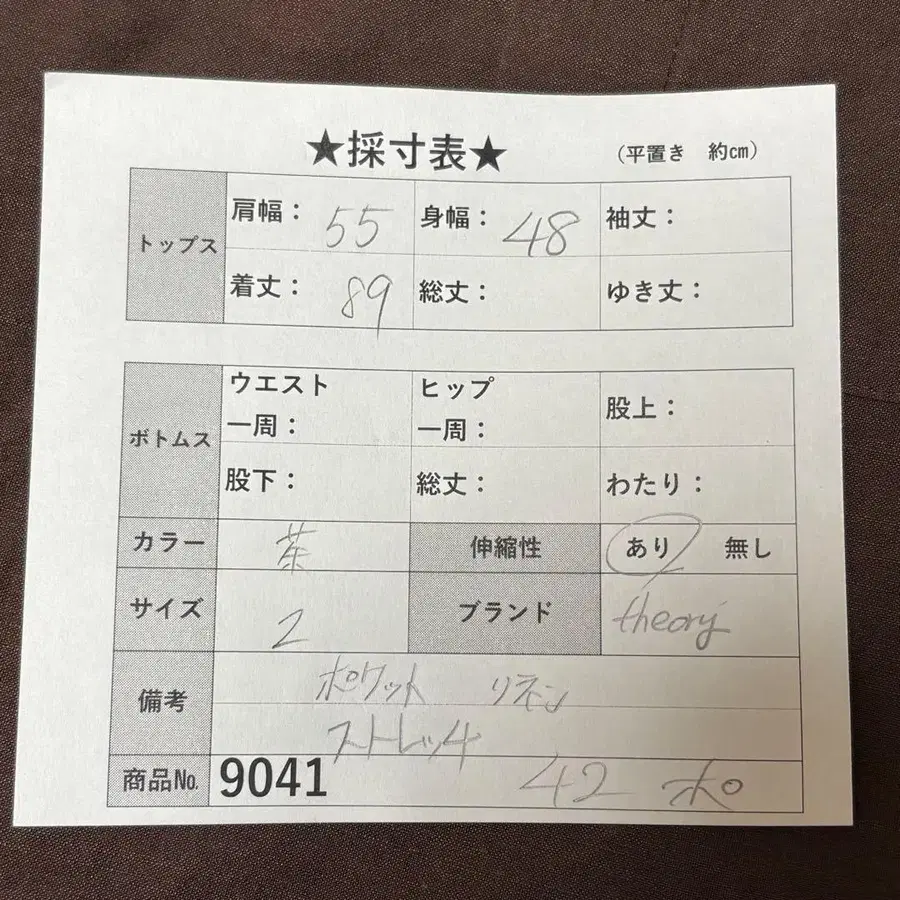 ★採寸表★ (平置き 約㎝)
トップス 肩幅： 55 身幅： 48 袖丈：
着丈： 89 総丈： ゆき丈：
ボトムス ウエスト一周： ヒップ一周： 股上：
股下： 総丈： わたり：
カラー 茶 伸縮性 あり 無し
サイズ 2 ブランド theory
備考 ポケット リネン
ストレッチ
商品№ 9041 42 ポ